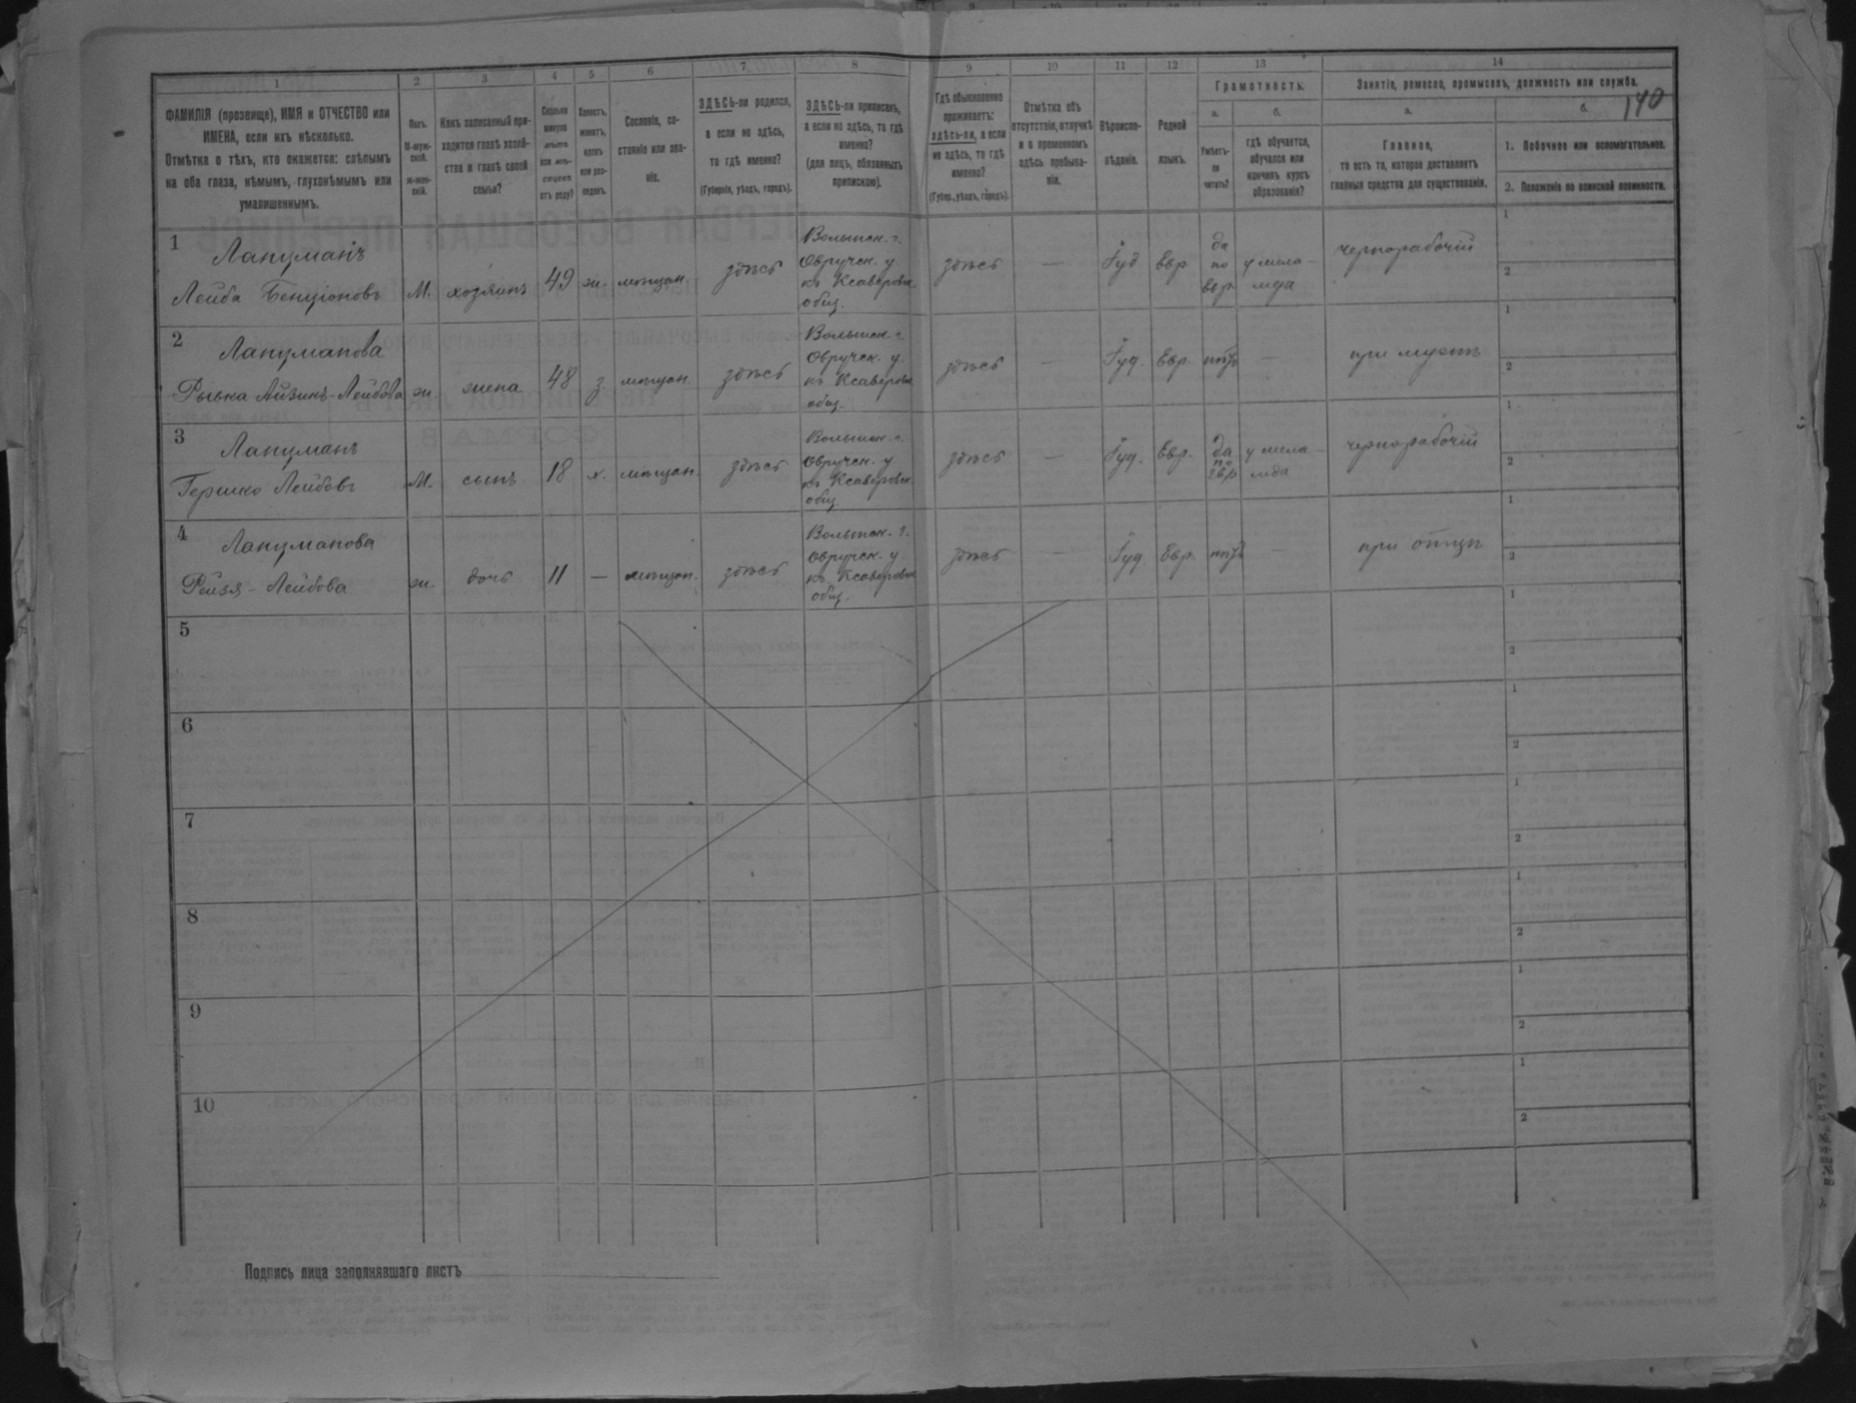 1 2 3 4 5 6 7 8 9 10 11 12 13 14
140
ФАМИЛІЯ (прозвище), ИМЯ и ОТЧЕСТВО или
ИМЕНА, если ихъ нѣсколько.
Отмѣтка о тѣхъ, кто окажется: слѣпымъ
на оба глаза, нѣмымъ, глухонѣмымъ или
умалишеннымъ.
Полъ.
М-муж-
ской.
Ж-жен-
скій.
Какъ записанный при-
ходится главѣ хозяй-
ства и главѣ своей
семьи?
Сколько
минуло
лѣтъ
или мѣ-
сяцевъ
отъ роду?
Холостъ,
женатъ,
вдовъ
или раз-
веденъ.
Сословіе, со-
стояніе или зва-
ніе.
ЗДѢСЬ-ли родился,
а если не здѣсь,
то гдѣ именно?
(Губернія, уѣздъ, городъ).
ЗДѢСЬ-ли приписанъ,
а если не здѣсь, то гдѣ
именно?
(для лицъ, обязанныхъ
припискою).
Гдѣ обыкновенно
проживаетъ:
здѣсь-ли, а если
не здѣсь, то гдѣ
именно?
(Губер., уѣздъ, городъ).
Отмѣтка объ
отсутствіи, отлучкѣ
и о временномъ
здѣсь пребыва-
ніи.
Вѣроиспо-
вѣданіе.
Родной
языкъ.
Грамотность.
а.
Умѣетъ-
ли
читать?
б.
гдѣ обучается,
обучался или
кончилъ курсъ
образованія?
Занятіе, ремесло, промыселъ, должность или служба.
а.
Главное,
то есть то, которое доставляетъ
главныя средства для существованія.
б.
1. Побочное или вспомогательное.
2. Положеніе по воинской повинности.
1
Лапуманъ
Лейба Бенціоновъ
М.
хозяинъ
49
ж.
мѣщан.
здѣсь
Волынск. г.
Овручск. у
къ Ксаверовск.
общ.
здѣсь
—
Іуд
Евр
да
по
евр
у мела-
мда
чернорабочій
1
2
2
Лапуманова
Рывка Айзикъ-Лейбова
ж.
жена
48
з.
мѣщан.
здѣсь
Волынск. г.
Овручск. у.
къ Ксаверовск.
общ.
здѣсь
—
Іуд.
Евр.
нѣтъ
—
при мужѣ
1
2
3
Лапуманъ
Гершко Лейбовъ
М.
сынъ
18
х.
мѣщан.
здѣсь
Волынск. г.
Овручск. у
къ Ксаверовск.
общ.
здѣсь
—
Іуд.
Евр.
да
по
Евр
у мела-
мда
чернорабочій
1
2
4
Лапуманова
Рейзя - Лейбова
ж.
дочь
11
—
мѣщан.
здѣсь
Волынск. г.
Овручск. у
къ Ксаверовск.
общ.
здѣсь
—
Іуд
Евр.
нѣтъ
—
при отцѣ
1
2
5
1
2
6
1
2
7
1
2
8
1
2
9
1
2
10
1
2
Подпись лица заполнявшаго листъ